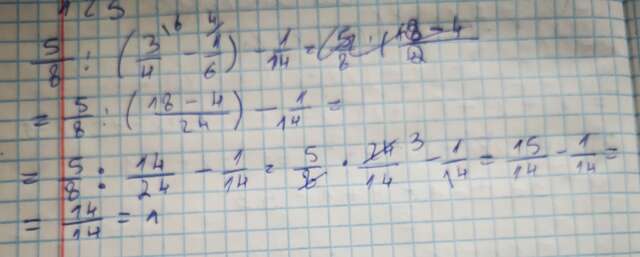 425
5/8 : (3/4 \6 - 1/6 4/) - 1/14 = (5/8 : (18 - 4/2
= 5/8 : (18 - 4/24) - 1/14 =
= 5/8 : 14/24 - 1/14 = 5/8 · 24/14 3 - 1/14 = 15/14 - 1/14 =
= 14/14 = 1